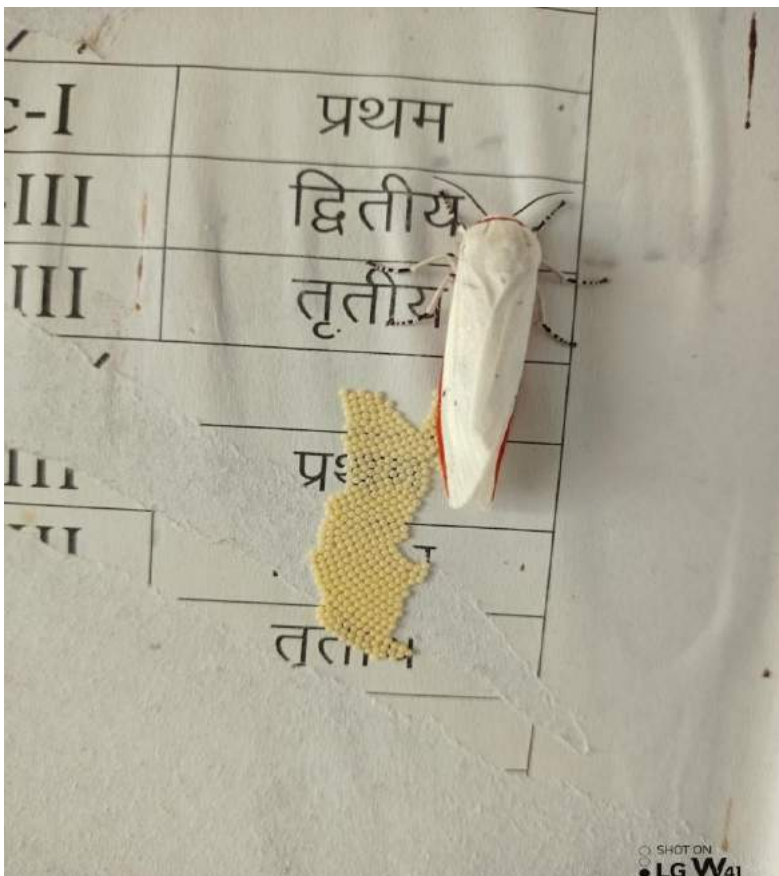 c-I प्रथम
III द्वितीय
III तृतीय
III
III
SHOT ON
LG W41